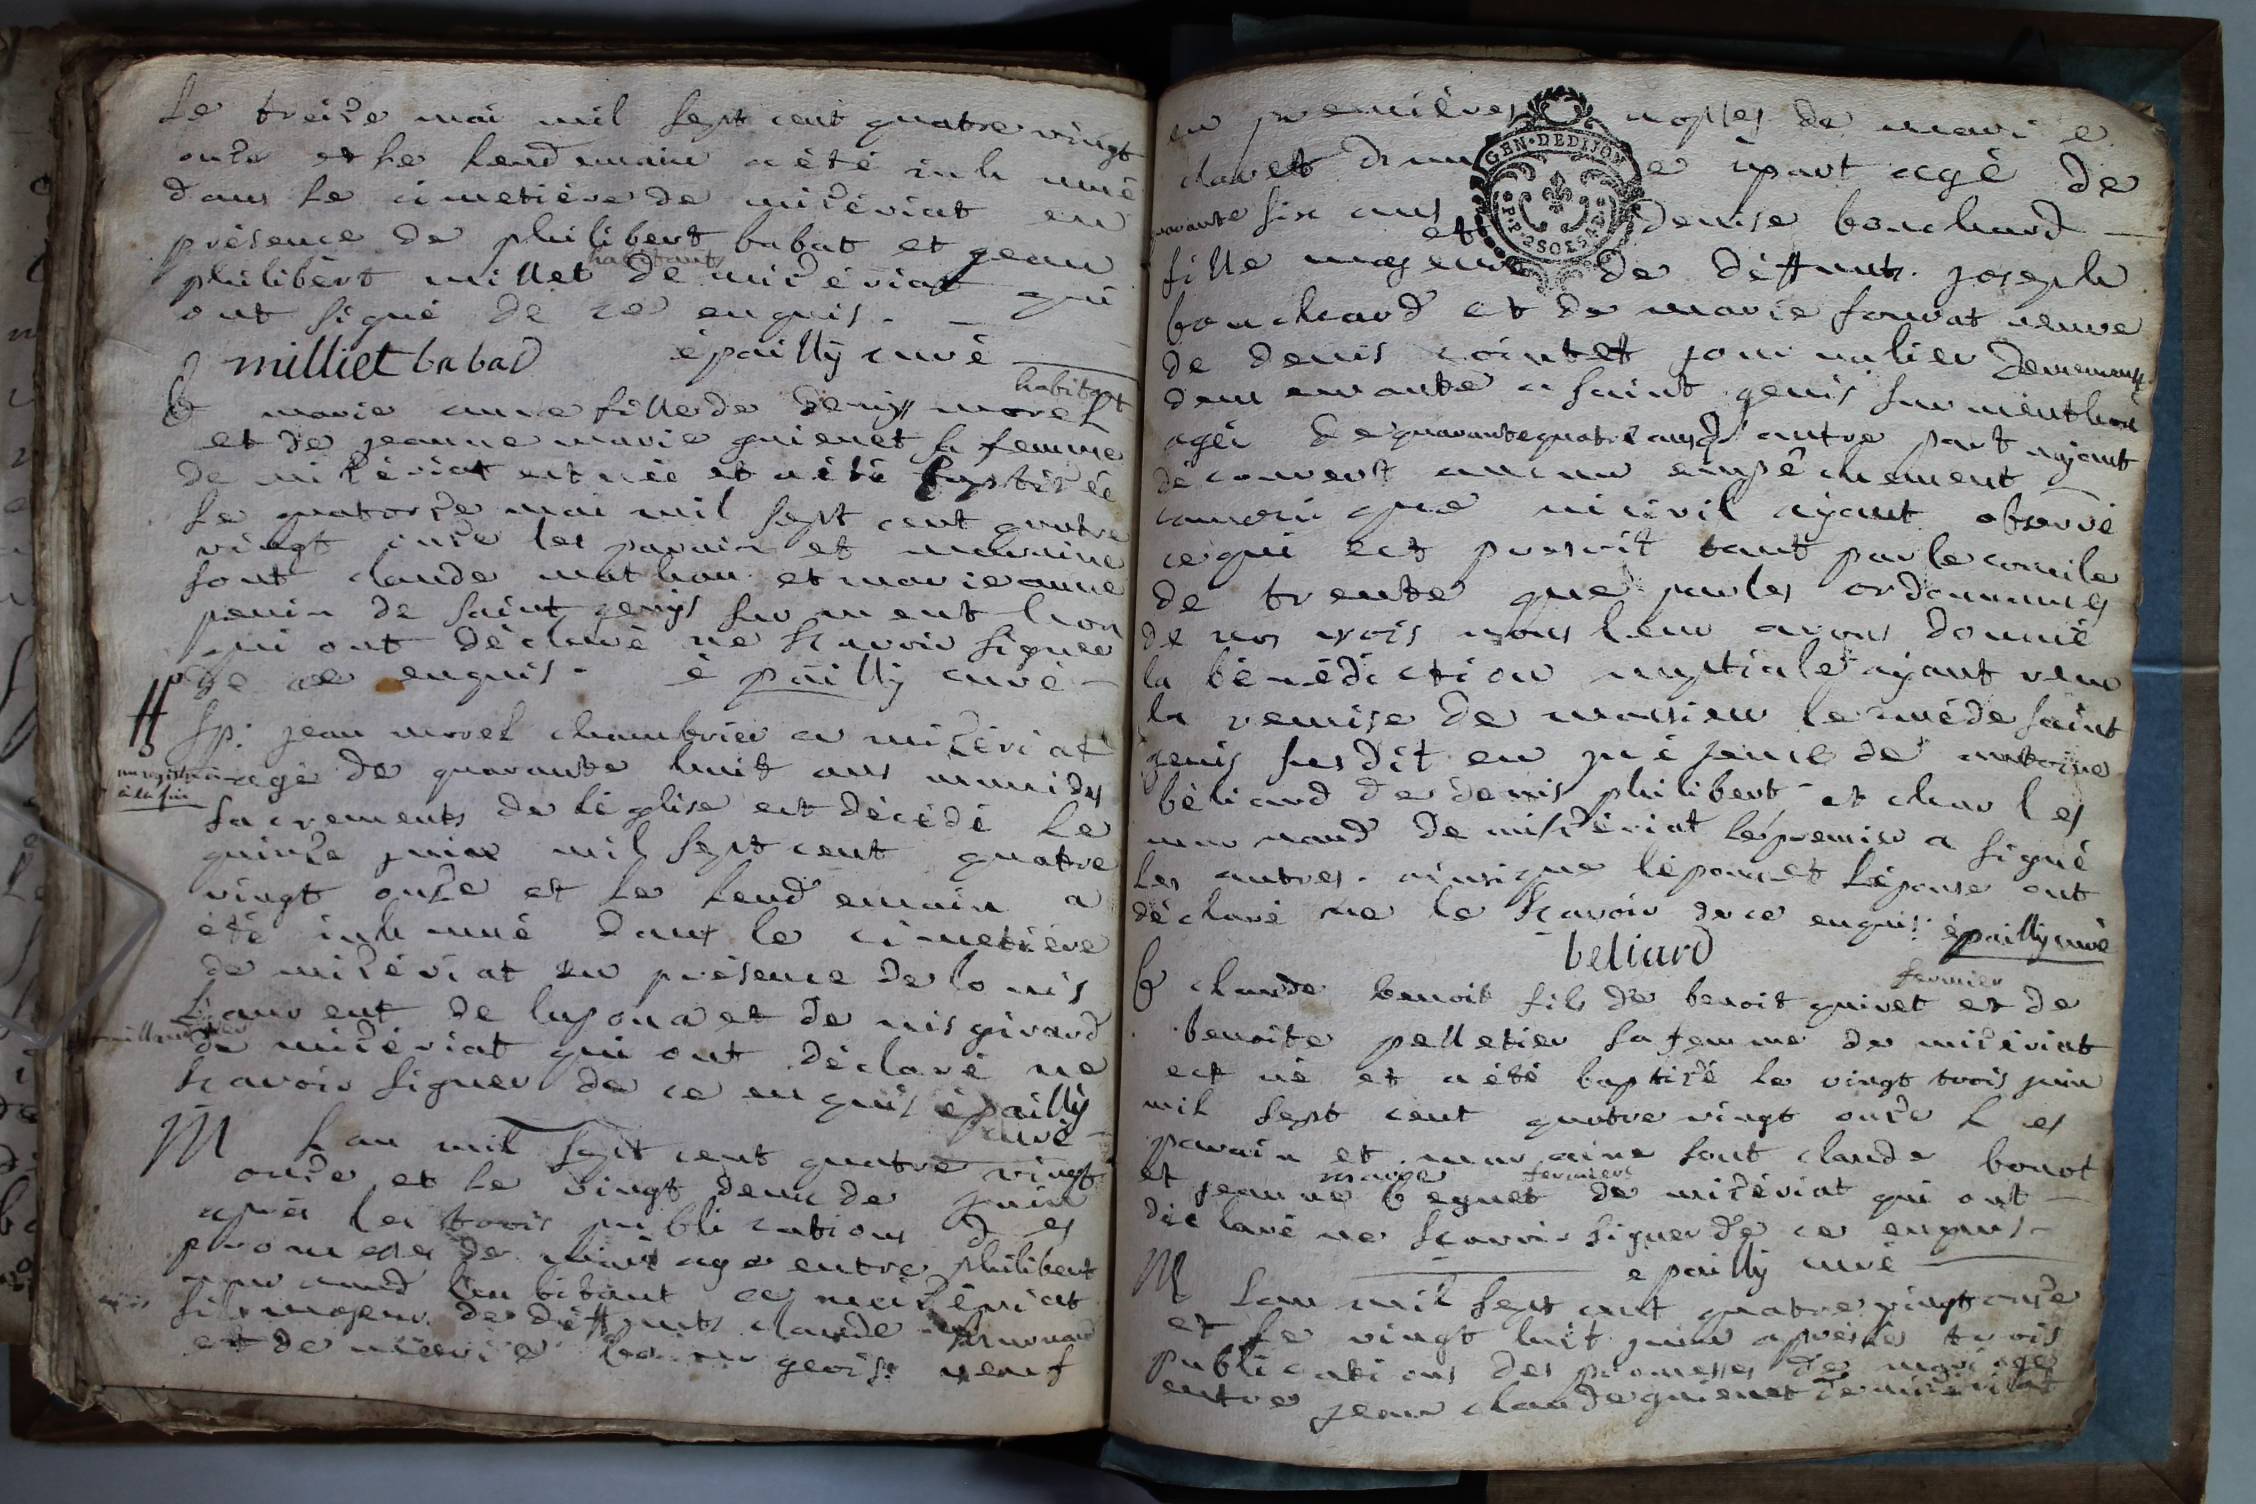 Le treize mai mil sept cent quatre vingt
onze et le lendemain a été inhumé
dans le cimetière de mizériat en
présence de philibert babat et jean
habitants
philibert millet de mizériat qui
ont signé de ce enquis. —
milliet babad épailly curé
habitant
B marie anne fille de denys morel
et de jeanne marie guienet sa femme
de mizériat est née et a été baptisée
le quatorze mai mil sept cent quatre
vingt onze les parain et maraine
sont claude mathon et marie anne
de saint genys sur menthon
qui ont déclaré ne scavoir signer
de ce enquis. é pailly curé —
Sp: jean morel chambrier a mizériat
agé de quarante huit ans muni des
à la fin
sacrements de léglise est décédé le
quinze juin mil sept cent quatre
vingt onze et le lendemain a
été inhumé dans le cimetière
de mizériat en présence de louis
laurent de luponas et denis girard
de mizériat qui ont déclaré ne
scavoir signer de ce enquis épailly
curé —
M Lan mil sept cent quatre vingt
onze et le vingt deux de juin
après les trois publications des
promesses de mariage entre philibert
habitant a mizériat
fils majeur de déffunts claude
et de marie veuf
en premières nopces de marie
clavet dune part agé de
quarante six ans et denise bouchard —
fille majeure de déffunts joseph
bouchard et de marie fourat veuve
de denis cointet journalier
demeurante a saint genis sur menthon
agée de quarante quatre ans d'autre part nayant
découvert aucun empêchement
canonique ni civil ayant observé
ce qui est prescrit tant par le concile
de trente que par les ordonnances
de nos rois nous leur avons donné
la bénédiction nuptiale ayant veu
la remise de monsieur le curé de saint
genis susdit en présence de antoine
béliard de denis philibert et charles
de mizériat le premier a signé
les autres ainsi que lépoux et lépouse ont
déclaré ne le scavoir de ce enquis: épailly curé
beliard
fermier
B claude benoit fils de benoit guivet et de
benoite pelletier sa femme de mizériat
est né et a été baptizé le vingt trois juin
mil sept cent quatre vingt onze les
parain et maraine sont claude bonot
fermiers
et jeanne de mizériat qui ont —
déclaré ne scavoir signer de ce enquis —
epailly curé
M Lan mil sept cent quatre vingt onze
et le vingt huit juin après les trois
publications des promesses de mariage
entre jean claude guienet de mizériat
GEN·DE DIJON